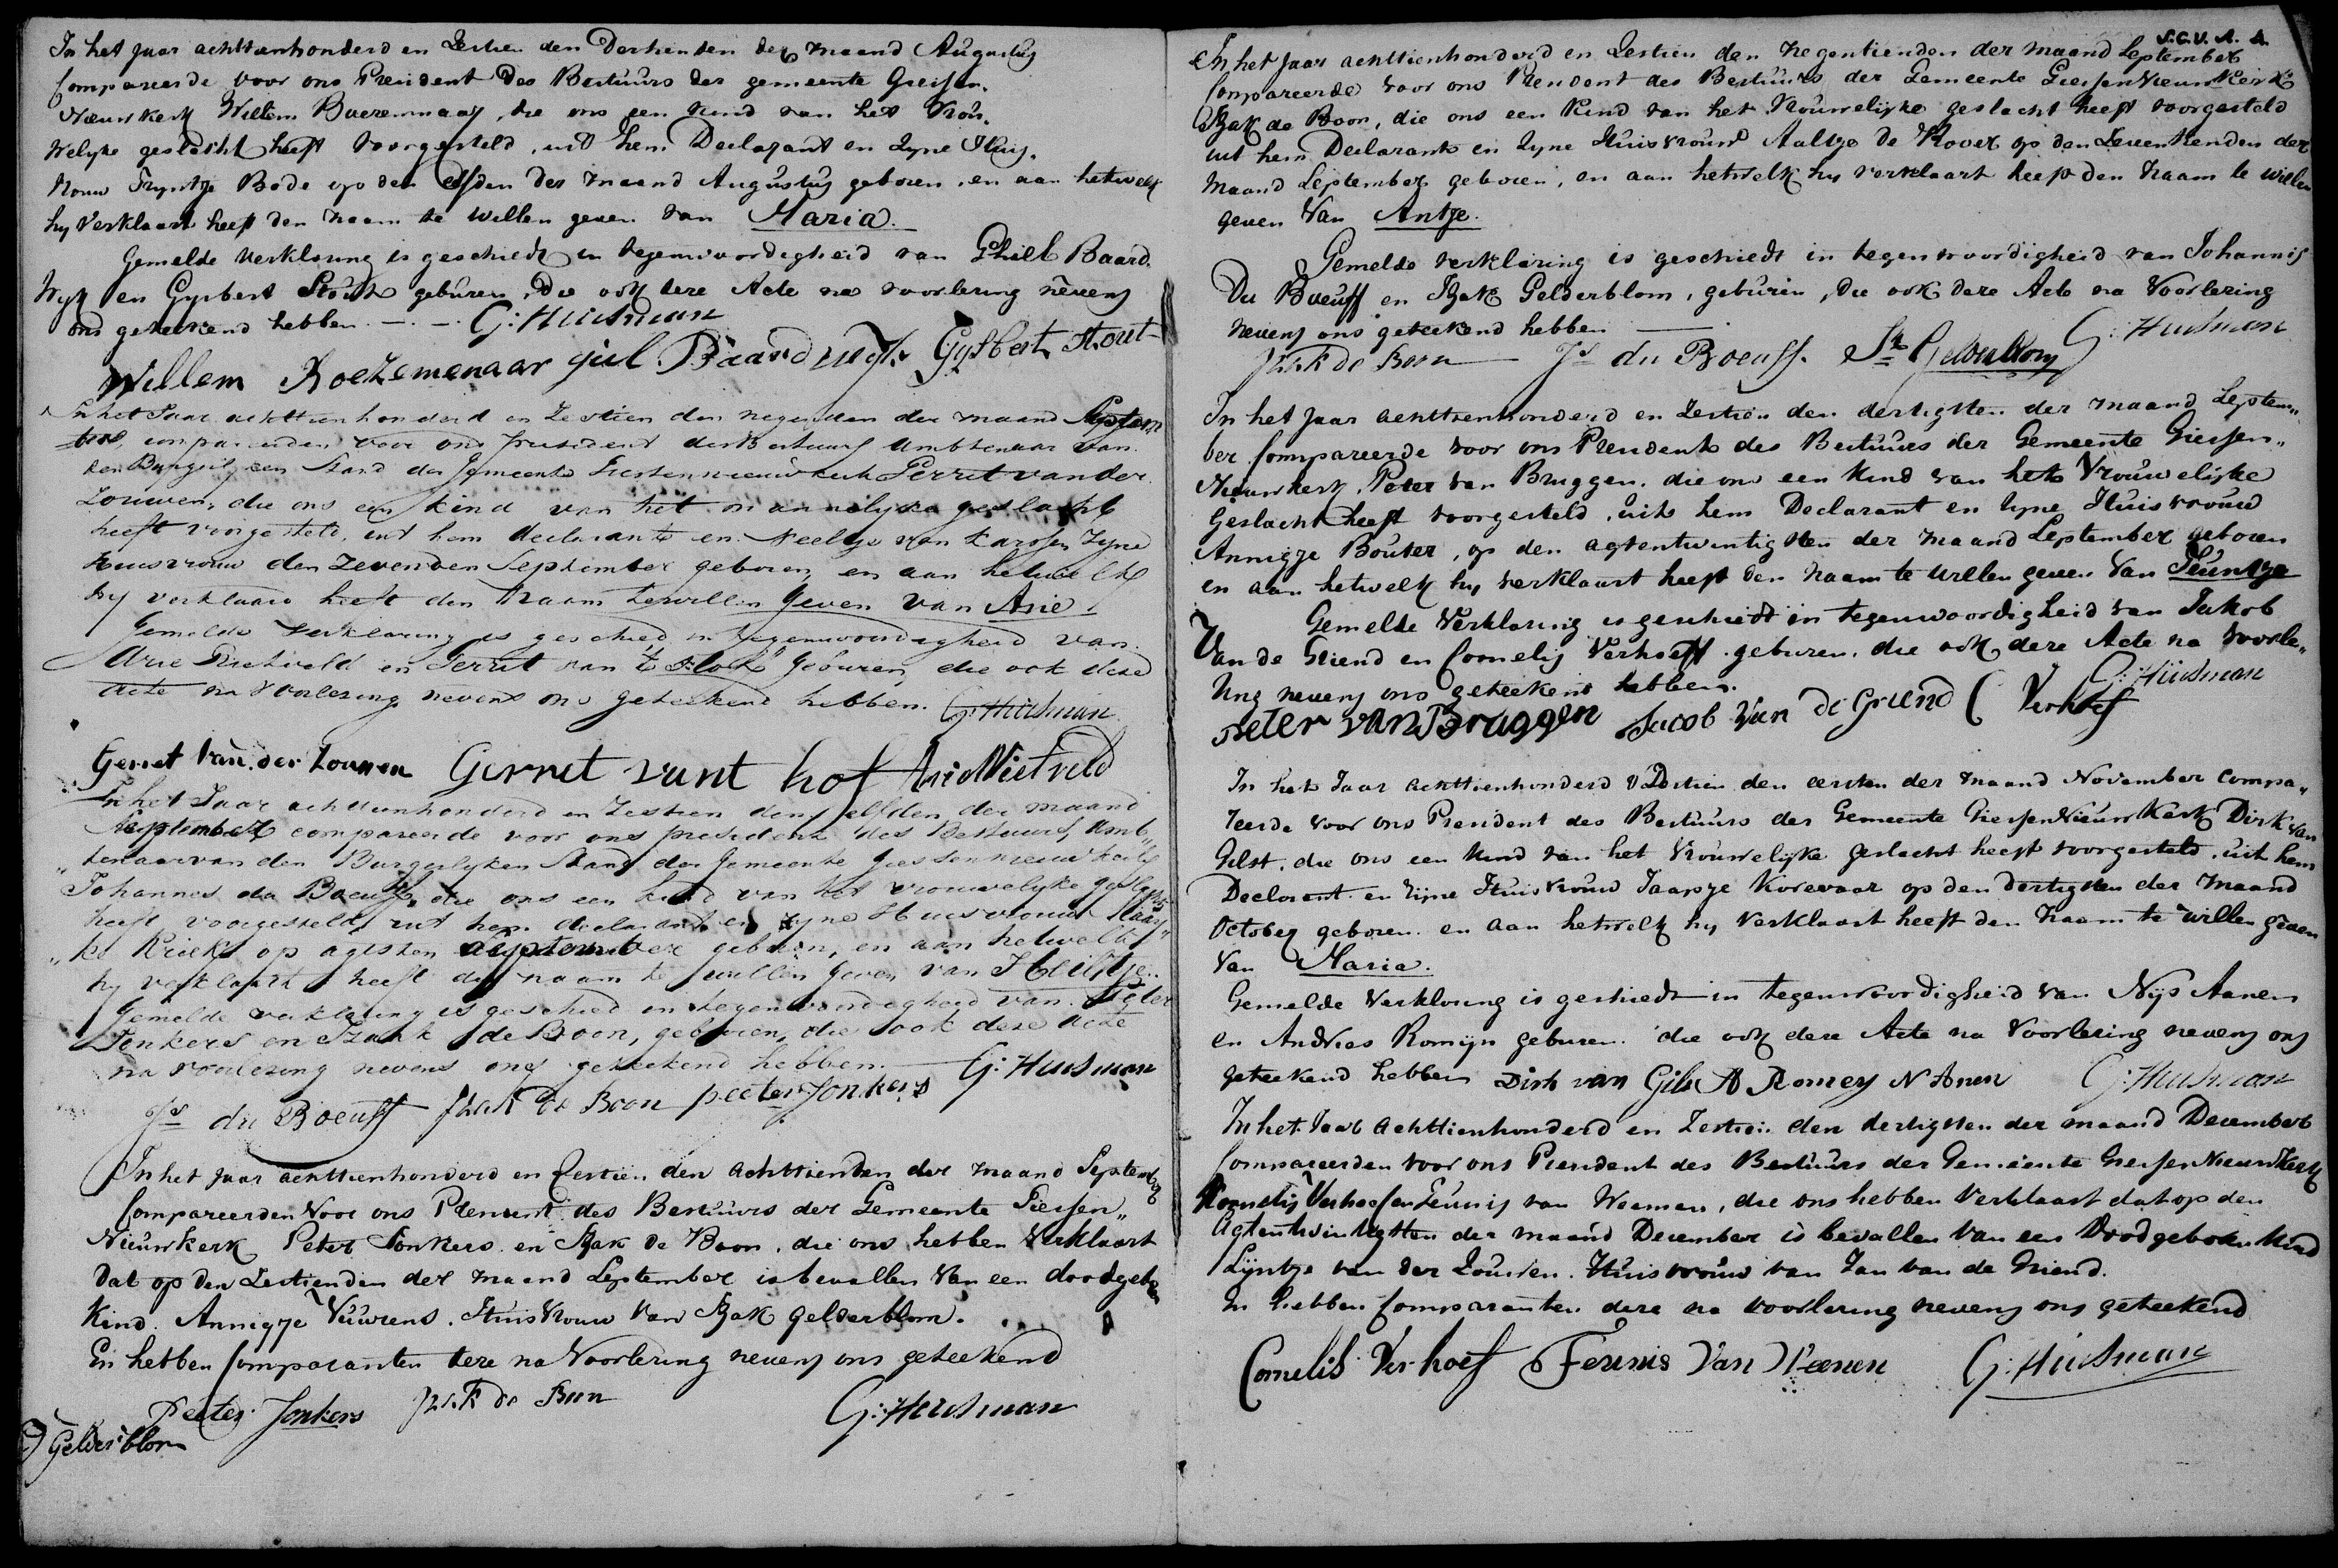 In het Jaar achttienhonderd en Zestien den Dertienden der maand Augustus
Compareerde voor ons President des Bestuurs der gemeente Giessen-
Nieuwkerk Willem Boezemnaar, die ons een kind van het Vrou-
welyke geslacht heeft voorgesteld, uit hem Declarant en zyne Huis-
vrouw Tryntje Bode op den elfden der maand Augustus geboren, en aan hetwelk
hy verklaart heeft den naam te willen geven van Maria.
Gemelde verklaring is geschiedt in tegenwoordigheid van Ghiel Baard
Wyk en Gysbert Stout geburen, die ook deze Acte na voorlezing nevens
ons geteekend hebben. G: Huisman
Willem Boezemenaar giel Baardwyk Gysbert Stout
In het Jaar achttienhonderd en Zestien den negenden der maand Septem
ber, compareerden voor ons President des Bestuurs Ambtenaar van
den Burgerlyken Stand der Gemeente Giessennieuwkerk Gerrit van der
Zouwen, die ons een kind van het mannelyke geslacht
heeft voorgesteld, uit hem declarante en Neeltje van Karssen Zyne
Huisvrouw den Zevenden September geboren, en aan hetwelk
hy verklaard heeft den Naam te willen Geven van Arie
Gemelde verklaring is geschied in tegenwoordigheid van
Arie Rietveld en Gerrit van 't Hof Geburen, die ook deze
acte na voorlezing nevens ons geteekend hebben. G: Huisman
Gerret van der Zouwen Gerret vant hof Arie Rietveld
In het Jaar achttienhonderd en Zestien den elfden der maand
September compareerde voor ons president des Bestuurs, Amb„
„tenaar van den Burgerlyken Stand der Gemeente Giessennieuwkerk
Johannes du Boeuff, die ons een kind van het vrouwelyke geslacht
heeft voorgesteld, uit hem declarant en zyne Huisvrouw
op agtsten September geboren, en aan hetwelk
hy verklaart heeft den naam te willen Geven van Heiltje
Gemelde verklaring is geschied in tegenwoordigheid van Peter
Jonkers en Izaak de Boon, geburen, die ook deze acte
na voorlezing nevens ons geteekend hebben. G: Huisman
Js du Boeuff Izak de Boon peeter Jonkers
In het Jaar achttienhonderd en Zestien den achttienden der maand September
Compareerden Voor ons President des Bestuurs der Gemeente Giessen„
Nieuwkerk Peter Jonkers en Izak de Boon, die ons hebben Verklaart
Dat op den Zestienden der maand September is bevallen Van een doodgeboren
Kind. Annigje Vuurens. Huisvrouw van Izak Gelderblom.
En hebben Comparanten deze na Voorlezing nevens ons geteekend
Peeter Jonkers Izak de Boon G: Huisman
Gelderblom
S.G.V. A. A.
In het Jaar achttienhonderd en Zestien den Negentienden der maand September
Compareerde voor ons President des Bestuurs der Gemeente GiessenNieuwKerk
Izak de Boon, die ons een Kind van het Vrouwelijke geslacht heeft voorgesteld
uit hem Declarant en Zyne Huisvrouw Aaltje de Rover op den Zeventienden der
Maand September geboren, en aan hetwelk hy verklaart heeft den Naam te willen
geven Van Antje.
Gemelde verklaring is geschiedt in tegenwoordigheid van Johannis
Du Boeuff en Izak Gelderblom, geburen, die ook deze Acte na Voorlezing
nevens ons geteekend hebben G: Huisman
Izak de Boon Js du Boeuff. Gelderblom
In het Jaar achttienhonderd en Zestien den dertigsten der maand Septem„
ber Compareerde voor ons President des Bestuurs der Gemeente Giessen„
Nieuwkerk, Peter van Bruggen, die ons een kind van het Vrouwelijke
Geslacht heeft voorgesteld, uit hem Declarant en zyne Huisvrouw
Annigje Bouter, op den agtentwintigsten der maand September geboren
en aan hetwelk hy verklaart heeft den naam te willen geven van Teuntje
Gemelde Verklaring is geschiedt in tegenwoordigheid van Jakob
Van de Griend en Cornelis Verhoeff geburen, die ook deze Acte na voorle„
zing nevens ons geteekend hebben. G: Huisman
Peter van Bruggen Jacob van de Griend C Verhoef
In het Jaar achttienhonderd Zestien den eersten der maand November Compa„
reerde voor ons President des Bestuurs der Gemeente GiessenNieuwKerk Dirk van
Gilst, die ons een kind van het Vrouwelijke geslacht heeft voorgesteld, uit hem
Declarant en zijne Huisvrouw Jaapje Korevaar op den dertigsten der maand
October geboren en aan hetwelk hy verklaart heeft den naam te willen geven
Van Maria.
Gemelde Verklaring is geschiedt in tegenwoordigheid van Nijs Aanen
en Andries Romijn geburen die ook deze Acte na Voorlezing nevens ons
geteekend hebben Dirk van Gilst A Romeyn N Anen G: Huisman
In het Jaar achttienhonderd en Zestien den dertigsten der maand December
Compareerden voor ons President des Bestuurs der Gemeente GiessenNieuwKerk
Kornelis Verhoef en Teunis van Weenen, die ons hebben Verklaart dat op den
Agtentwintigsten der maand December is bevallen Van een Doodgeboren kind
Lijntje van der Zouwen. Huisvrouw van Jan van de Griend.
En hebben Comparanten deze na voorlezing nevens ons geteekend
Cornelis Verhoef Teunis Van Weenen G: Huisman